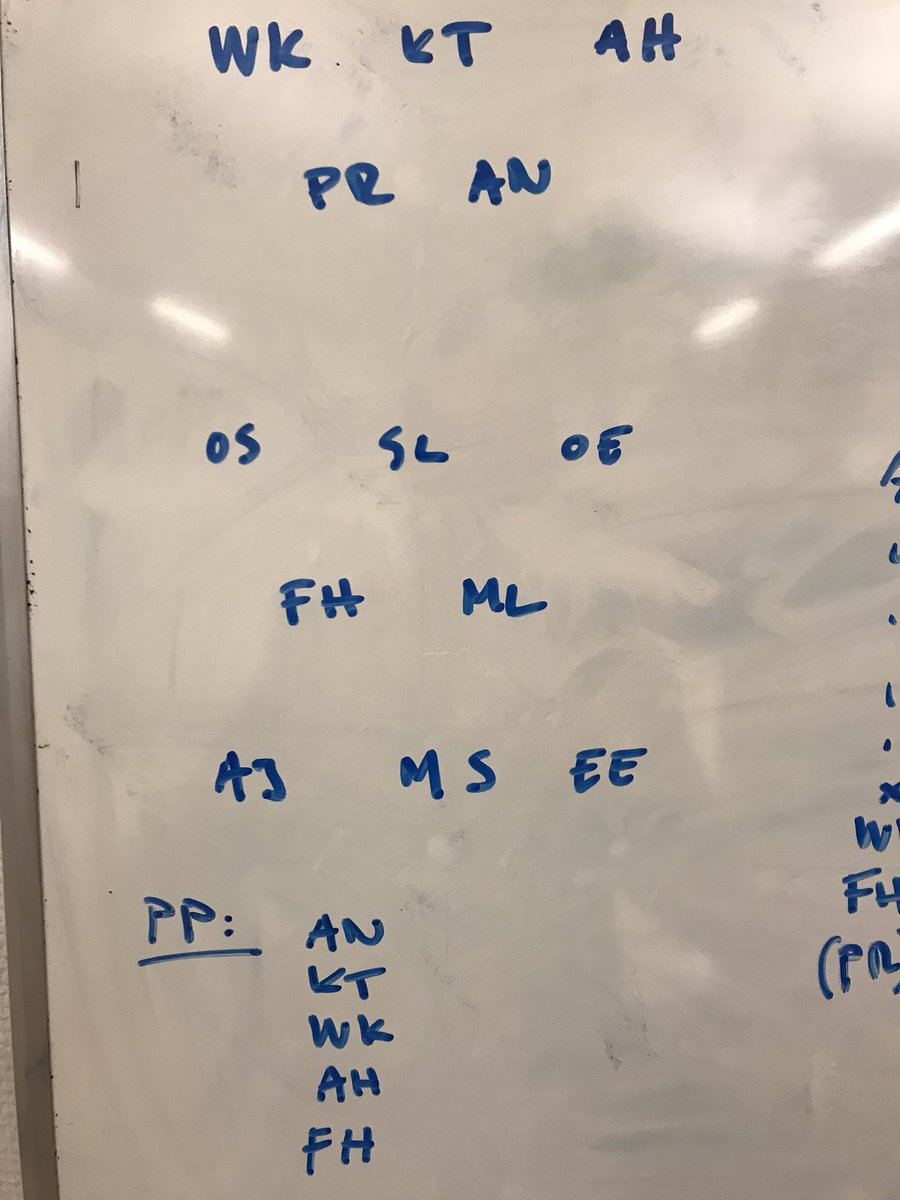 WK KT AH
PR AN
OS SL OE
FH ML
AJ MS EE
PP: AN
KT
WK
AH
FH
FH
(PR)